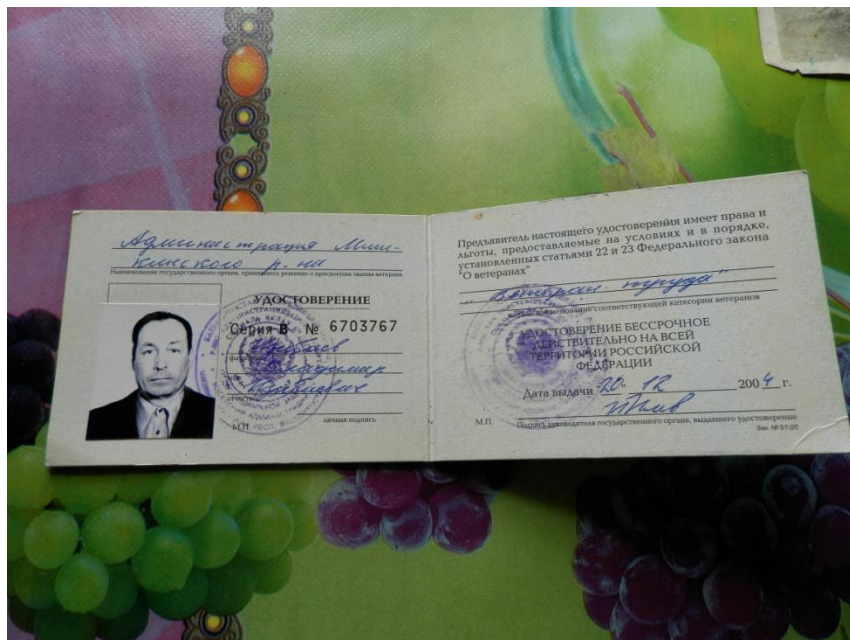 Администрация Миш-
кинского р-на
Наименование государственного органа, принявшего решение о присвоении звания ветерана
УДОСТОВЕРЕНИЕ
Серия В № 6703767
Владимир
М.П.
личная подпись
Предъявитель настоящего удостоверения имеет права и
льготы, предоставляемые на условиях и в порядке,
установленных статьями 22 и 23 Федерального закона
"О ветеранах"
"Ветеран труда"
наименование соответствующей категории ветеранов
УДОСТОВЕРЕНИЕ БЕССРОЧНОЕ
ДЕЙСТВИТЕЛЬНО НА ВСЕЙ
ТЕРРИТОРИИ РОССИЙСКОЙ
ФЕДЕРАЦИИ
Дата выдачи 20. 12 2004 г.
М.П.
Подпись руководителя государственного органа, выдавшего удостоверение